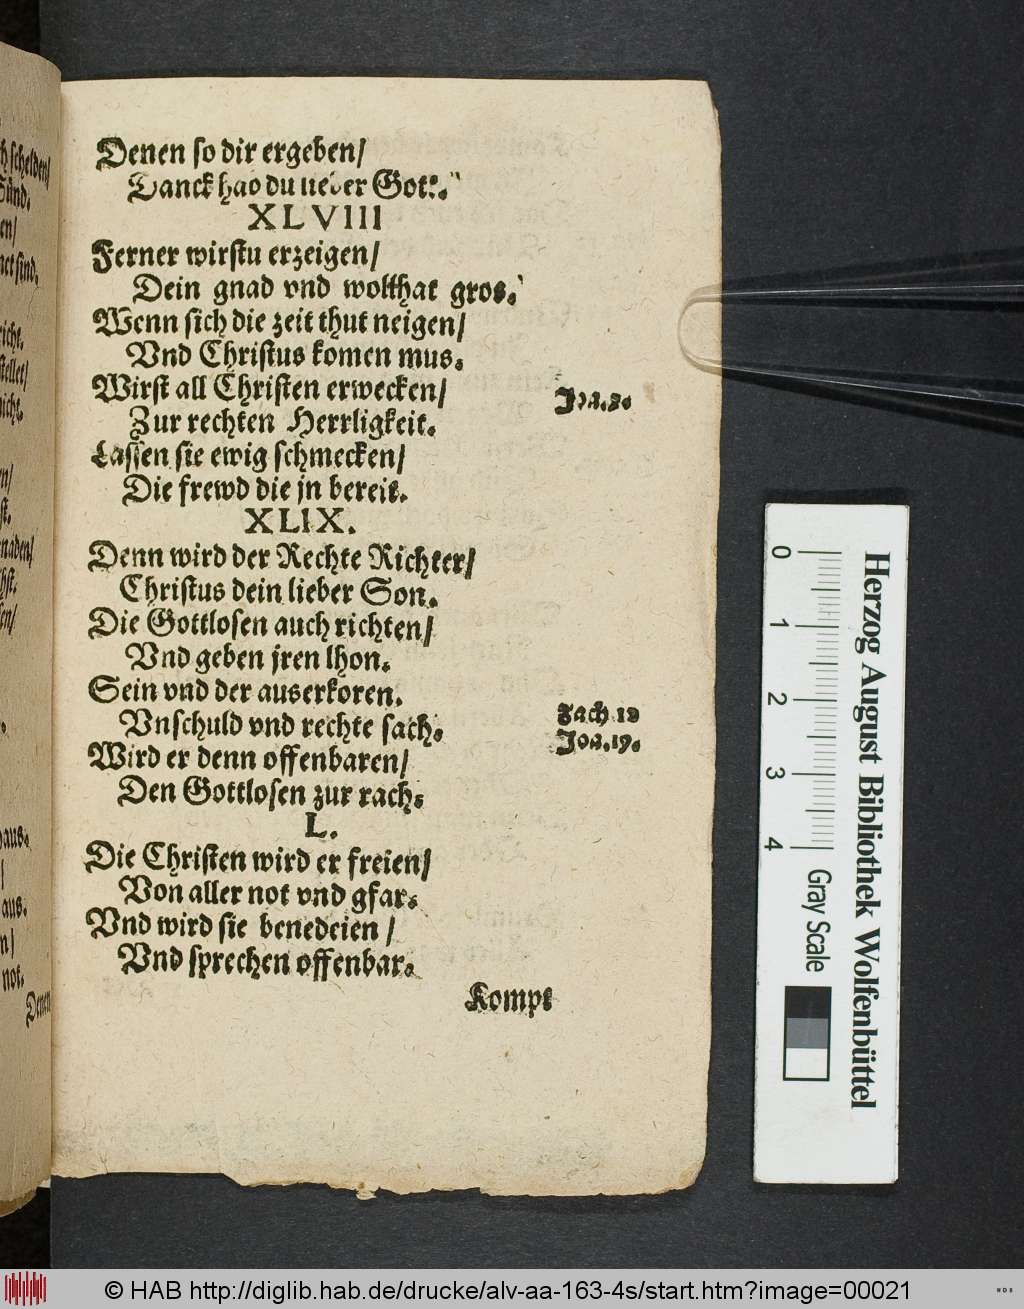 Denen so dir ergeben/
Danck hab du lieber Gott.
XLVIII
Ferner wirstu erzeigen/
Dein gnad vnd wolthat gros.
Wenn sich die zeit thut neigen/
Vnd Christus komen mus.
Wirst all Christen erwecken/
Joa.5.
Zur rechten Herrligkeit.
Lassen sie ewig schmecken/
Die frewd die jn bereit.
XLIX.
Denn wird der Rechte Richter/
Christus dein lieber Son.
Die Gottlosen auch richten/
Vnd geben jren lhon.
Sein vnd der auserkoren.
Vnschuld vnd rechte sach.
Zach 12
Joa.19.
Wird er denn offenbaren/
Den Gottlosen zur rach.
L.
Die Christen wird er freien/
Von aller not vnd gfar.
Vnd wird sie benedeien /
Vnd sprechen offenbar.
Kompt
schelden/
Sünd.
en/
net sind.
richt.
stellet/
nicht.
en/
st.
naden/
en/
haus.
/
aus.
n/
not.
Denen
0 1 2 3 4
Gray Scale
Herzog August Bibliothek Wolfenbüttel
© HAB http://diglib.hab.de/drucke/alv-aa-163-4s/start.htm?image=00021